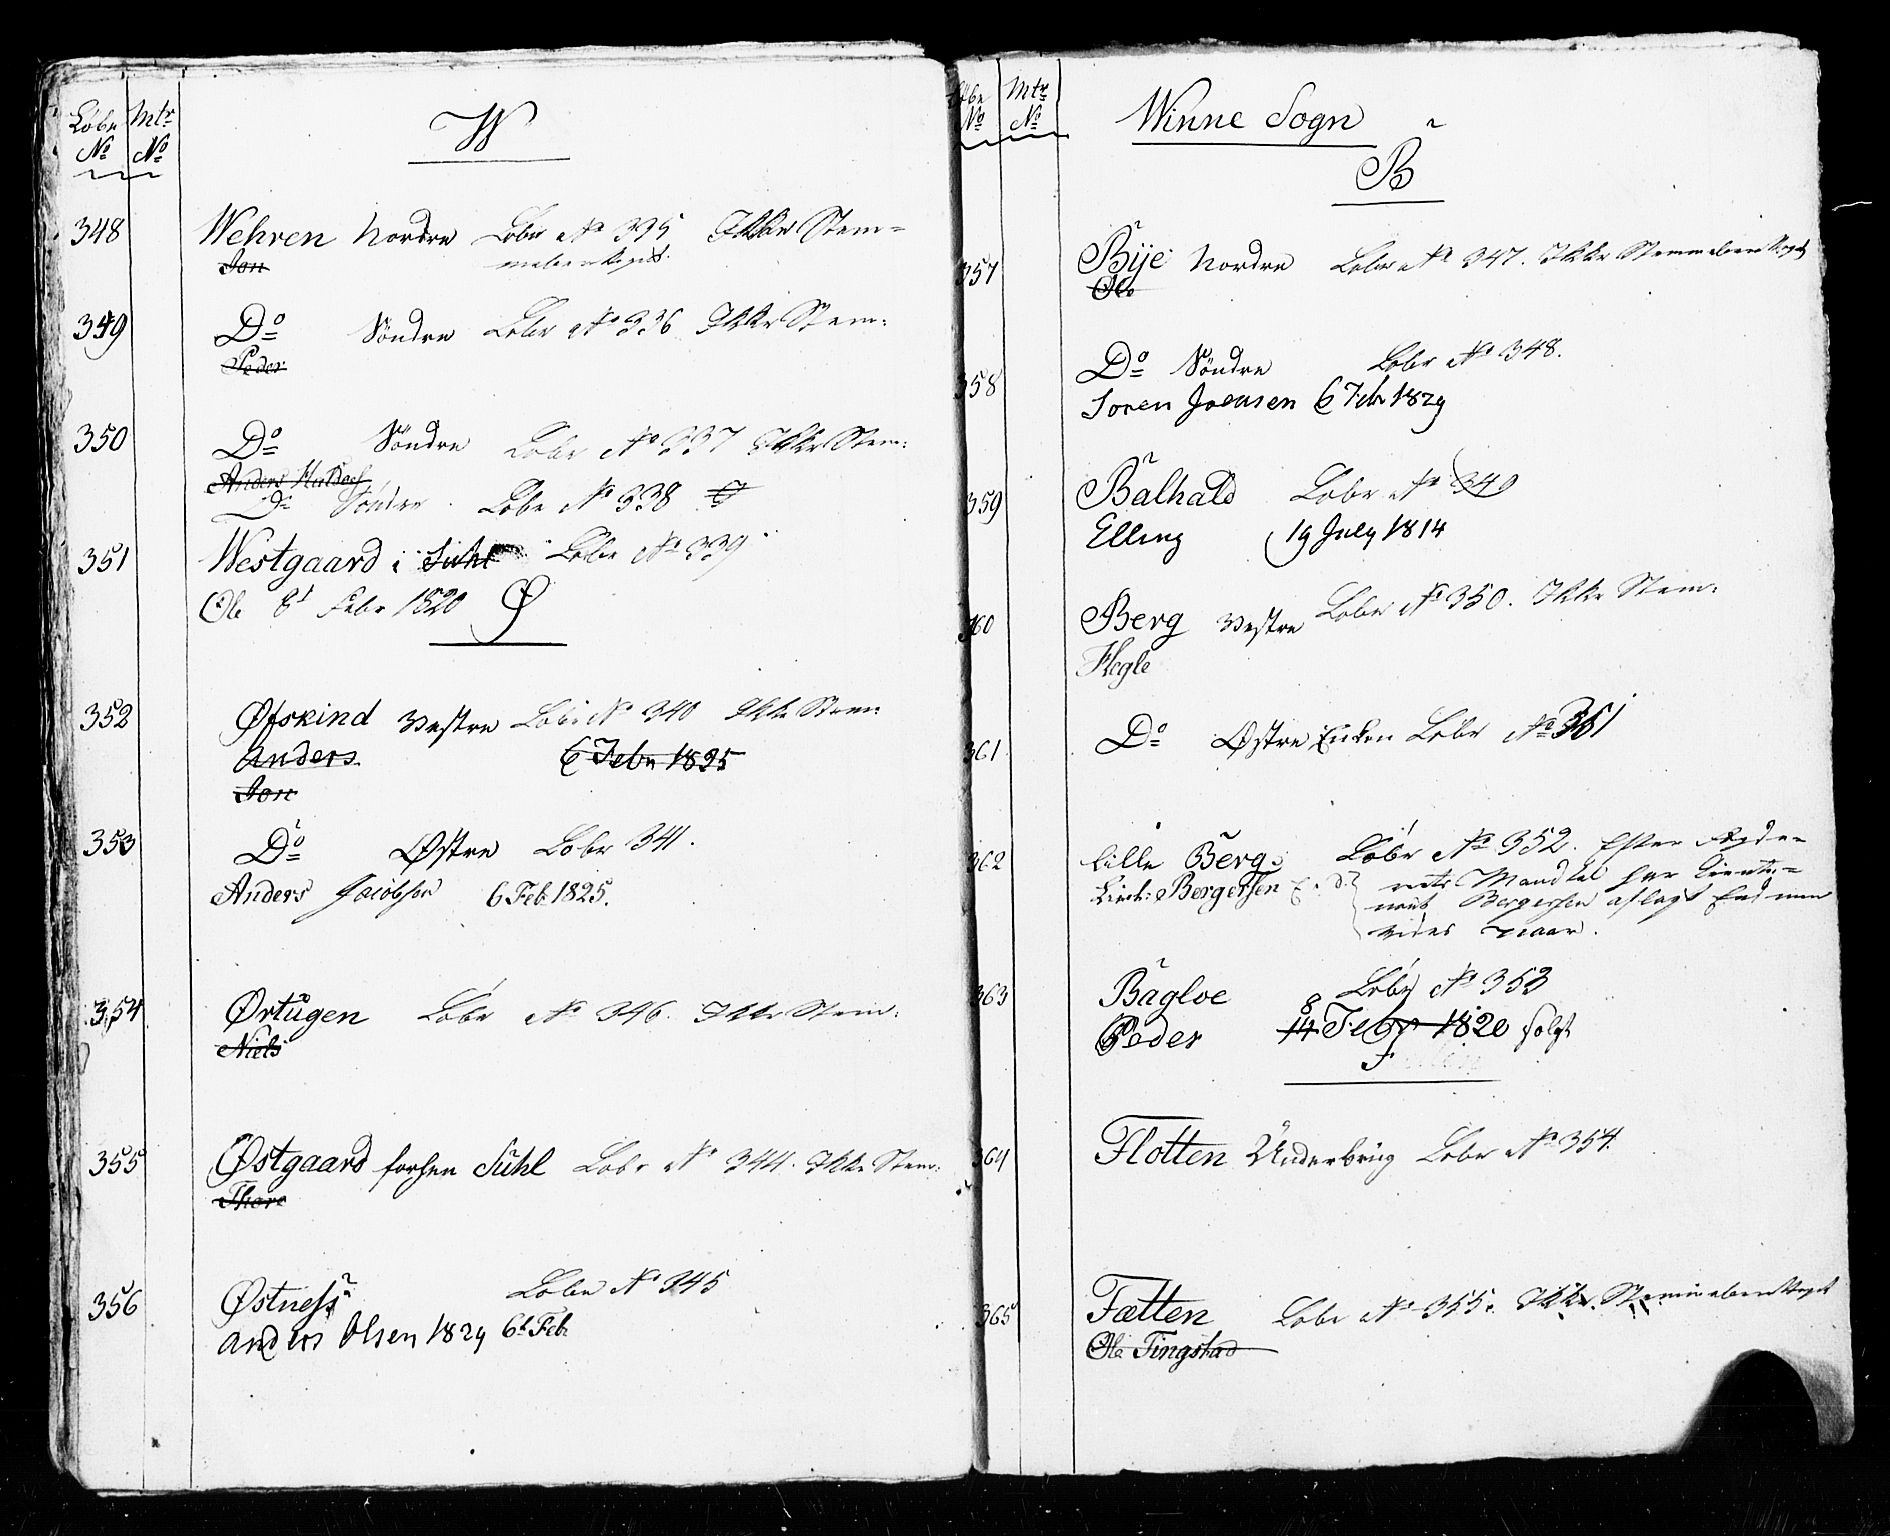 Løbe Mtr
No No
W
348 Wehren Nordre Løbe No 335 Ikke Stem=
Jon meberettiget.
349 Do Söndre Løbe No 336 Ikke Stem:
Peder
350 Do Söndre Løbe No 337 Ikke Stem:
Anders
Do Söndre Løbe No 338
351 Westgaard i Suhl Løbe No 339
Ole 8t Febr 1820
Ø
352 Øfskind Vestre Løbe No 340 Ikke Stem:
Anders 6 Febr 1825
Jon
353 Do Østre Løbe 341.
Anders Jacobsen 6 Feb 1825.
354 Ørtugen Løbe No 346. Ikke Stem:
Niels
355 Østgaard forhen Suhl Løbe No 344. Ikke Stem:
Thore
356 Østness Løbe No 345
Anders Olsen 1829 6t Feb
Løbe Mtr
No No
Winne Sogn
B
357 Bye Nordre Løbe No 347. Ikke Stemmeberettiget
Ole
358 Do Söndre Løbe No 348.
Soren Joensen 6 Feb 1829
359 Balhald Løbe No 349
Elling 19 July 1814
360 Berg Vestre Løbe No 350. Ikke Stem:
Flegle
361 Do Østre Enken Løbe No 351
362 Lille Berg Løbe No 352. Efter
Lieut: Bergersen Mandtal har Lieute=
nant Bergersen aflagt Eed men
vides naar.
363 Bagloe Løbe No 353
Peder 8 14 Febr 1820 solgt
F
364 Flotten Underbrug Løbe No 354.
365 Fætten Løbe No 355. Ikke Stemmeberettiget
Ole Tingstad